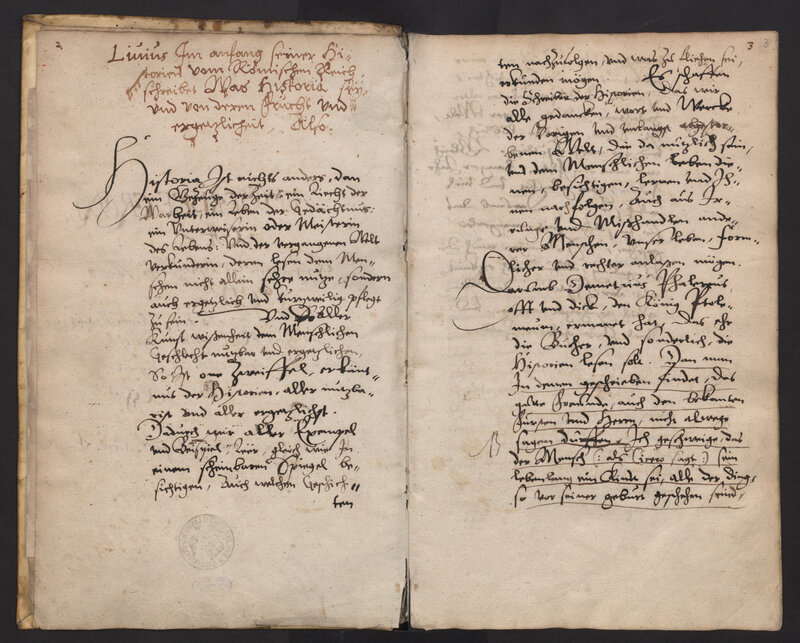 2
Liuius Im anfang seiner Hi-
storien vom Römischen Reich
schreibet Was Historia sey
vnd von deren frucht vnd
ergetzlicheit, Also.
Historia Ist nichts anders, dan
ein Gezeuge der Zeit: ein Liecht der
Warheit: ein Leben der Gedächtnus:
ein Unterweiserin oder Meisterin
des Lebens: Vnd der vergangenen Welt
Verkünderin, deren lesen dem Men-
schen nicht allein sehre nutze, sondern
auch ergetzlich vnd kurzweilig pflegt
zu sein. Vnd So aller
Kunst wißenheit dem Menschlichen
Geschlecht nutzbar vnd ergetzlichen,
So Ist one Zweiffel, erkent-
nus der Historien, aller nutzba-
rist vnd aller ergetzlichst.
Dadurch wir aller Exempel
vnd Beispiel, hier, gleich wie In
einem scheinbaren Spiegel be-
sichtigen, Auch welchen Geschich-
ten
3
3
ten nachzufolgen, vnd was zu fliehen sei,
erkunden mögen. Es schaffen
die Schreiber der Historien, Das wir
alle gedancken, wort vnd Wercke
der Vorigen vnd vnlangst abgestor-
benen Welt, die da nutzlich sein,
vnd dem Menschlichen Leben die-
nen, besichtigen, lernen vnd Ih-
nen nachfolgen, Auch aus Ir-
runge vnd Mischandlen ande-
rer Menschen, Unser leben, Form-
licher vnd rechter anlassen mügen.
Darumb Demetrius Phalereus
offt vnd dick, den König Ptole-
meum, ermanet hat, Das ehr
die Bücher, vnd sonderlich, die
Historien lesen sole. Dan man
In denen geschrieben findet, das
gutte Freunde, auch den bekanten
Fursten vnd Herrn, nicht alwege
sagen durffen, Ich geschweige, das
der Mensch (: als Cicero sagt :) sein
lebenlang ein Kindt sei, alle der ding,
so vor seiner geburt geschehen seind.